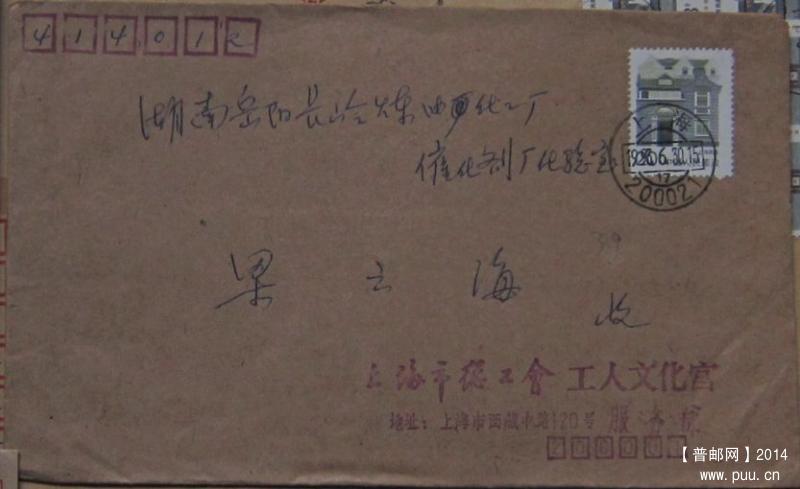 414012
湖南岳阳长岭炼油化工厂
催化剂厂化验室
上海
1988.06.30.15
17
200021
39
梁立海
收
上海市总工會工人文化宫
地址：上海市西藏中路120号 服务
【普邮网】2014
www.puu.cn